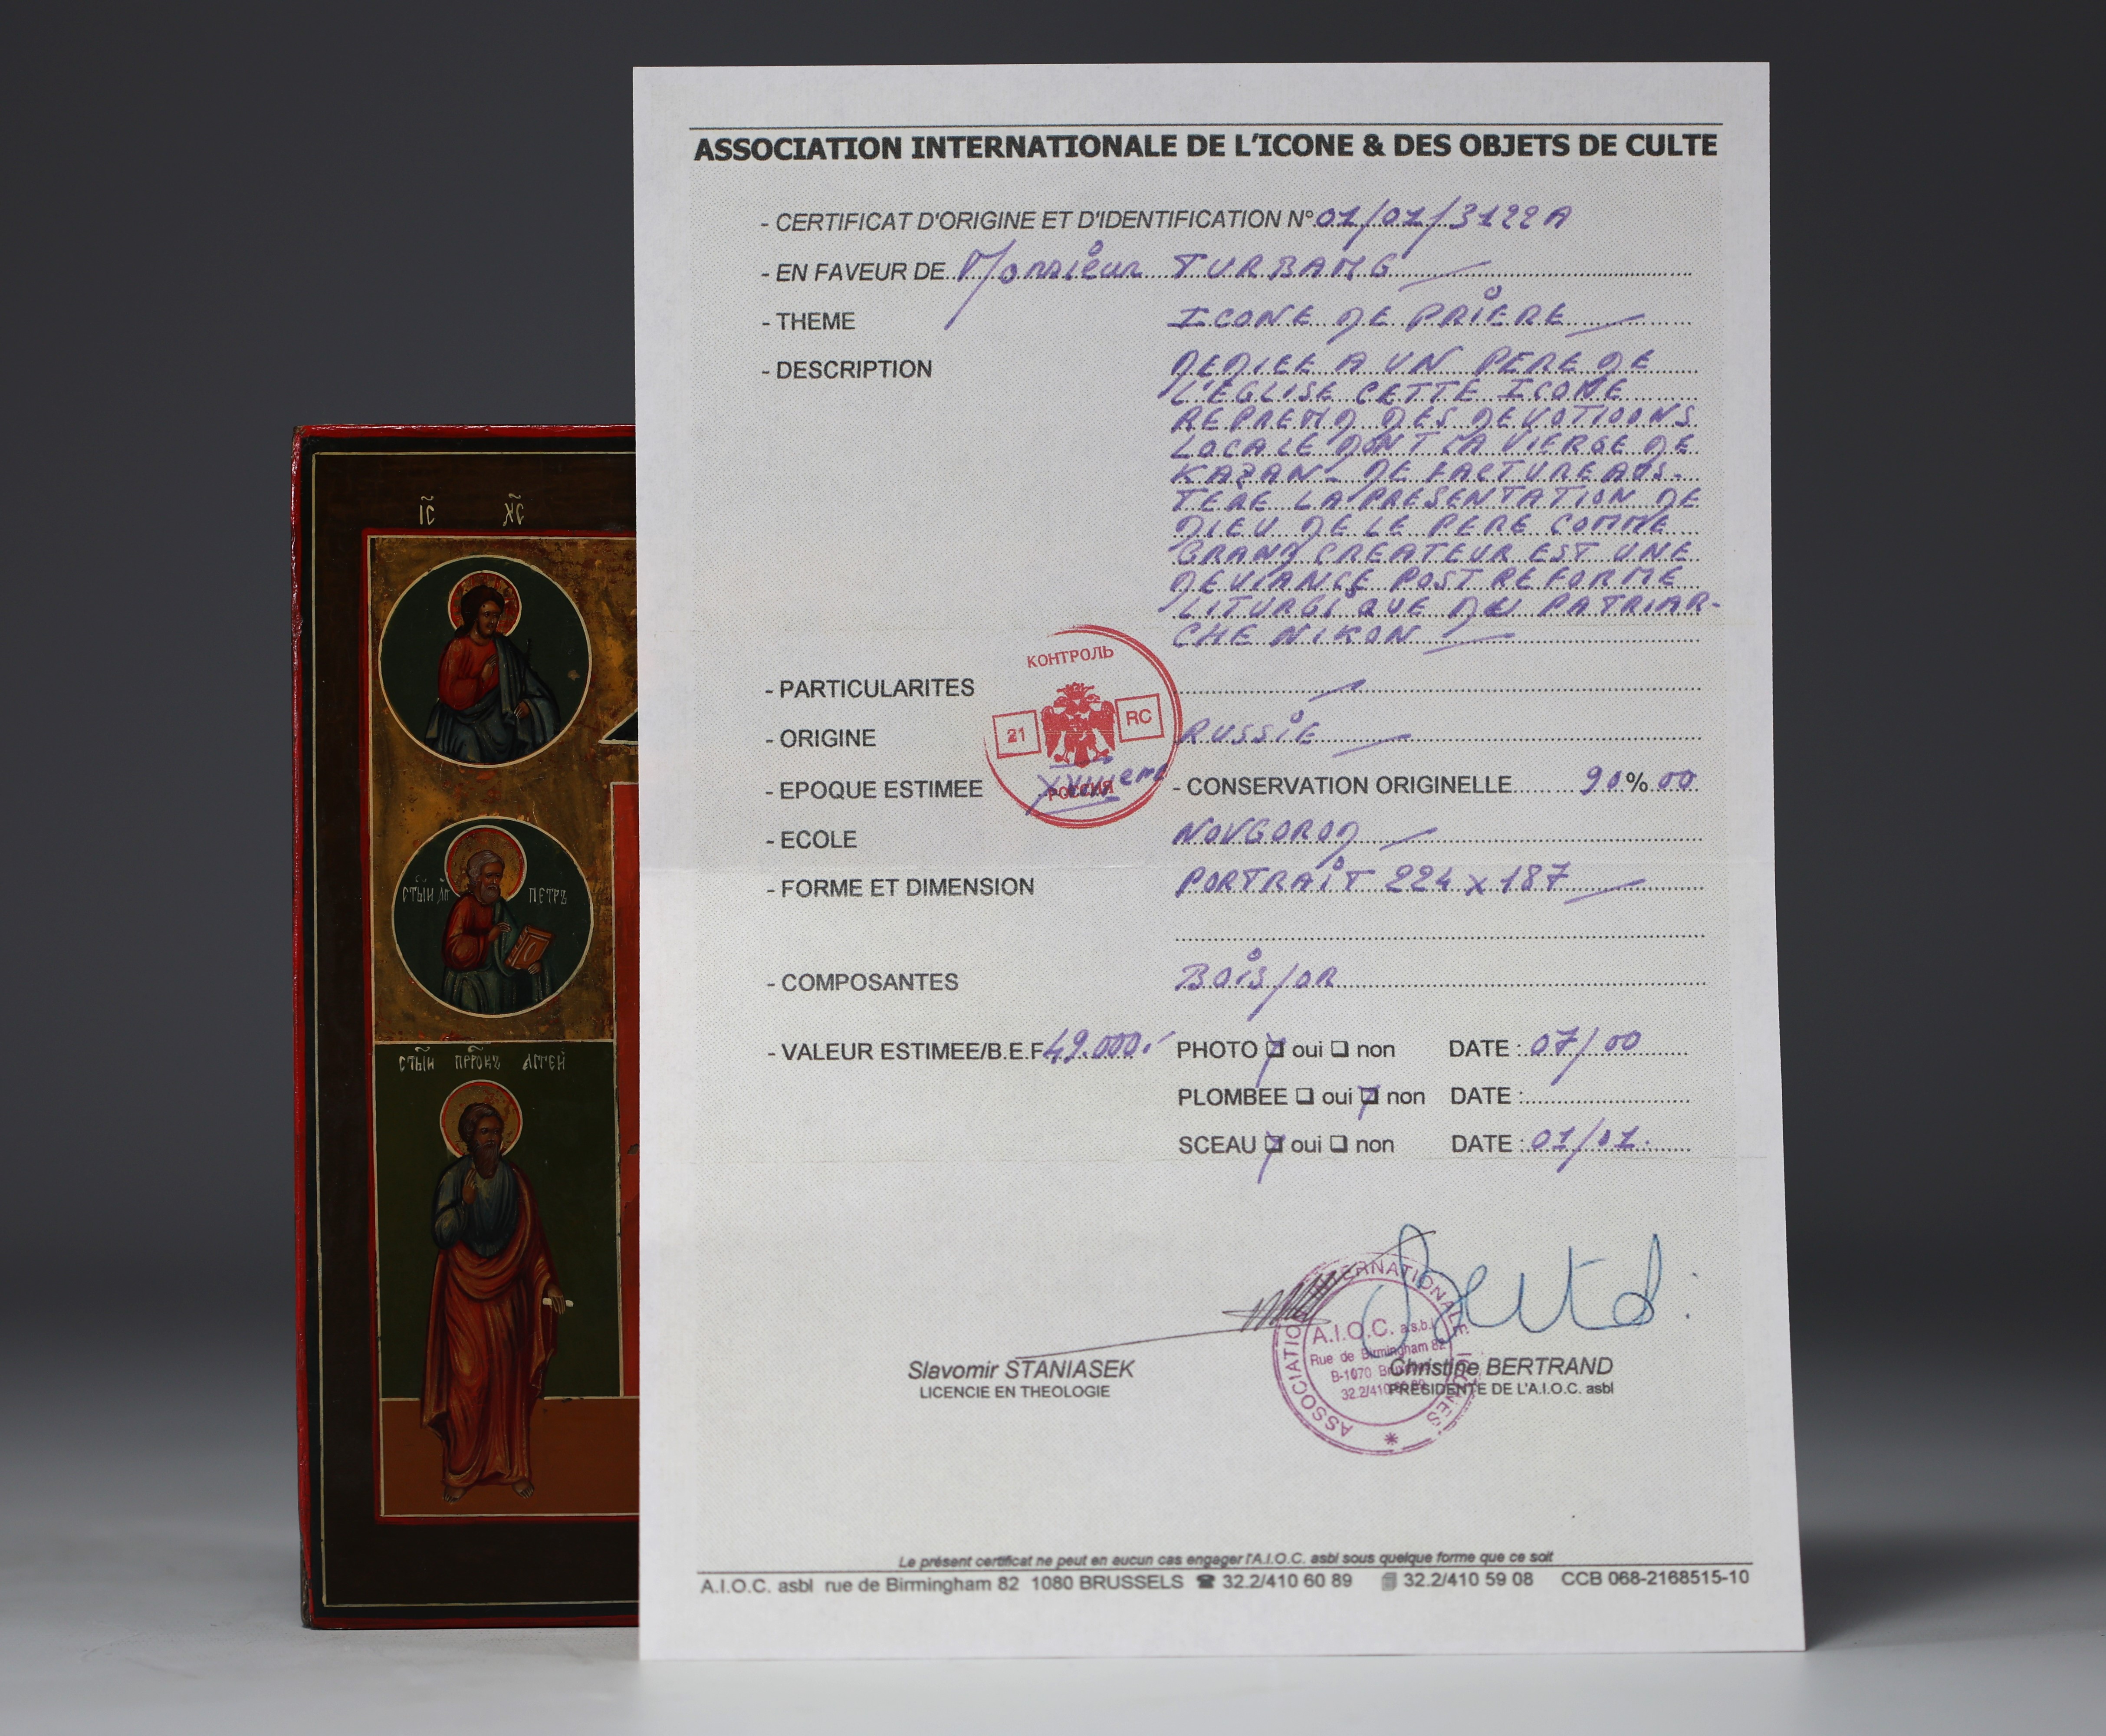 ASSOCIATION INTERNATIONALE DE L'ICONE & DES OBJETS DE CULTE
- CERTIFICAT D'ORIGINE ET D'IDENTIFICATION N° 01/01/3122A
- EN FAVEUR DE Monsieur TURBANG
- THEME ICONE DE PRIERE
- DESCRIPTION DEDIEE A UN PERE DE
L'EGLISE CETTE ICONE
REPREND DES DEVOTIOONS
LOCALE DONT LA VIERGE DE
KAZAN - DE FACTURE AUS-
TERE LA PRESENTATION DE
DIEU DE LE PERE COMME
GRAND CREATEUR EST UNE
DEVIANCE POST REFORME
LITURGIQUE DU PATRIAR-
CHE NIKON
- PARTICULARITES
- ORIGINE RUSSIE
- EPOQUE ESTIMEE - CONSERVATION ORIGINELLE 90 % 00
- ECOLE NOVGOROD
- FORME ET DIMENSION PORTRAIT 224 x 187
- COMPOSANTES BOIS/OR
- VALEUR ESTIMEE/B.E.F 49.000.- PHOTO oui non DATE : 07/00
PLOMBEE oui non DATE :
SCEAU oui non DATE : 01/01.
КОНТРОЛЬ
21 RC
РОССИЯ
ASSOCIATION INTERNATIONALE
A.I.O.C. a.s.b.l
Rue de Birmingham 82
B-1070
32.2/410
Slavomir STANIASEK
LICENCIE EN THEOLOGIE
Christine BERTRAND
PRESIDENTE DE L'A.I.O.C. asbl
Le présent certificat ne peut en aucun cas engager l'A.I.O.C. asbl sous quelque forme que ce soit
A.I.O.C. asbl rue de Birmingham 82 1080 BRUSSELS ☎ 32.2/410 60 89 32.2/410 59 08 CCB 068-2168515-10
IC XC
СТЫИ АП ПЕТРЪ
СТЫИ ПРРОКЪ АГГЕЙ